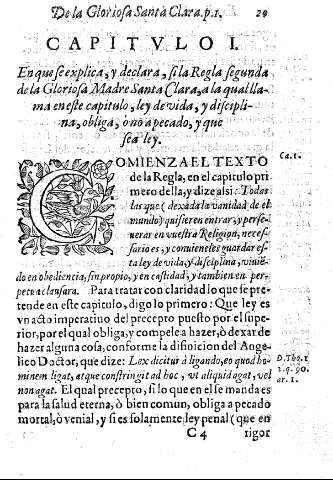 De la Gloriosa Santa Clara. p. 1. 29
CAPITVLO I.
En que se explica, y declara, si la Regla segunda
de la Gloriosa Madre Santa Clara, a la qual lla-
ma en este capitulo, ley de vida, y discipli-
na, obliga, ò no a pecado, y que
sea ley.
COMIENZA EL TEXTO Ca. 1.
de la Regla, en el capitulo pri
mero della, y dize assi: Todas
las que (dexada la vanidad de el
mundo) quisieren entrar, y perse-
uerar en vuestra Religion, neces-
sario es, y conuieneles guardar es-
ta ley de vida, y disciplina, viuiẽ-
do en obediencia, sin propio, y en castidad, y tambien en per-
petua clausura. Para tratar con claridad lo que se pre-
tende en este capitulo, digo lo primero: Que ley es
vn acto imperatiuo del precepto puesto por el supe-
rior, por el qual obliga, y compele a hazer, ò dexar de
hazer alguna cosa, conforme la difinicion del Ange-
lico Doctor, que dize: Lex dicitur à ligando, eo quod ho- D. Tho. 1
minem ligat, atque constringit ad hoc, vt aliquid agat, vel 2. q. 90.
non agat. El qual precepto, si lo que en el se manda es ar. 1.
para la salud eterna, ò bien comun, obliga a pecado
mortal, ò venial, y si es solamente ley penal (que en
C 4 rigor